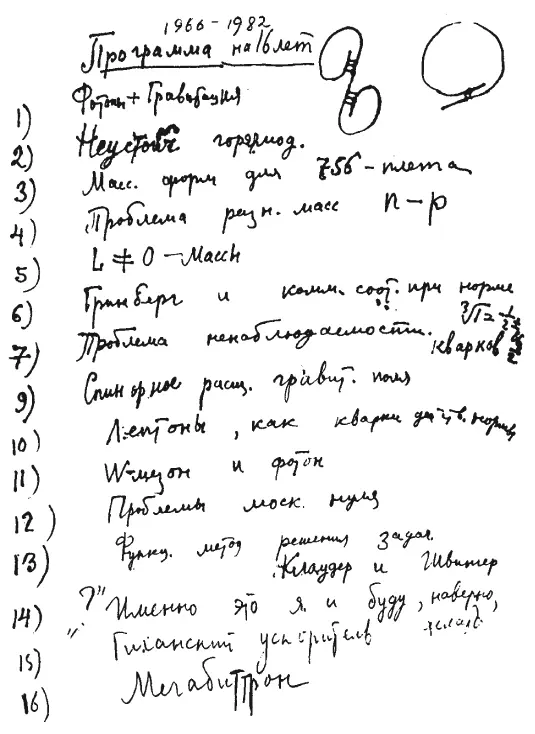 1966-1982
Программа на 16 лет
1) Фотоны + Гравитация
2) Неустойч гориzoнд.
3) Масс. форм для 756-плета
4) Проблема разн. масс n-p
5) L ≠ 0 - Массы
6) Гринберг и комм. соот. при норме
7) Проблема ненаблюдаемости. кварков
9) Спинорное расщ. гравит. поля
10) Лептоны, как кварки действ. нормы
11) W-мезон и фотон
12) Проблемы моск. нуля
13) Функц. метод решения задач.
Клаудер и Швингер
14) ? "Именно это я и буду, наверно, делать"
15) Гиханский ускоритель
16) Мегабиттрон